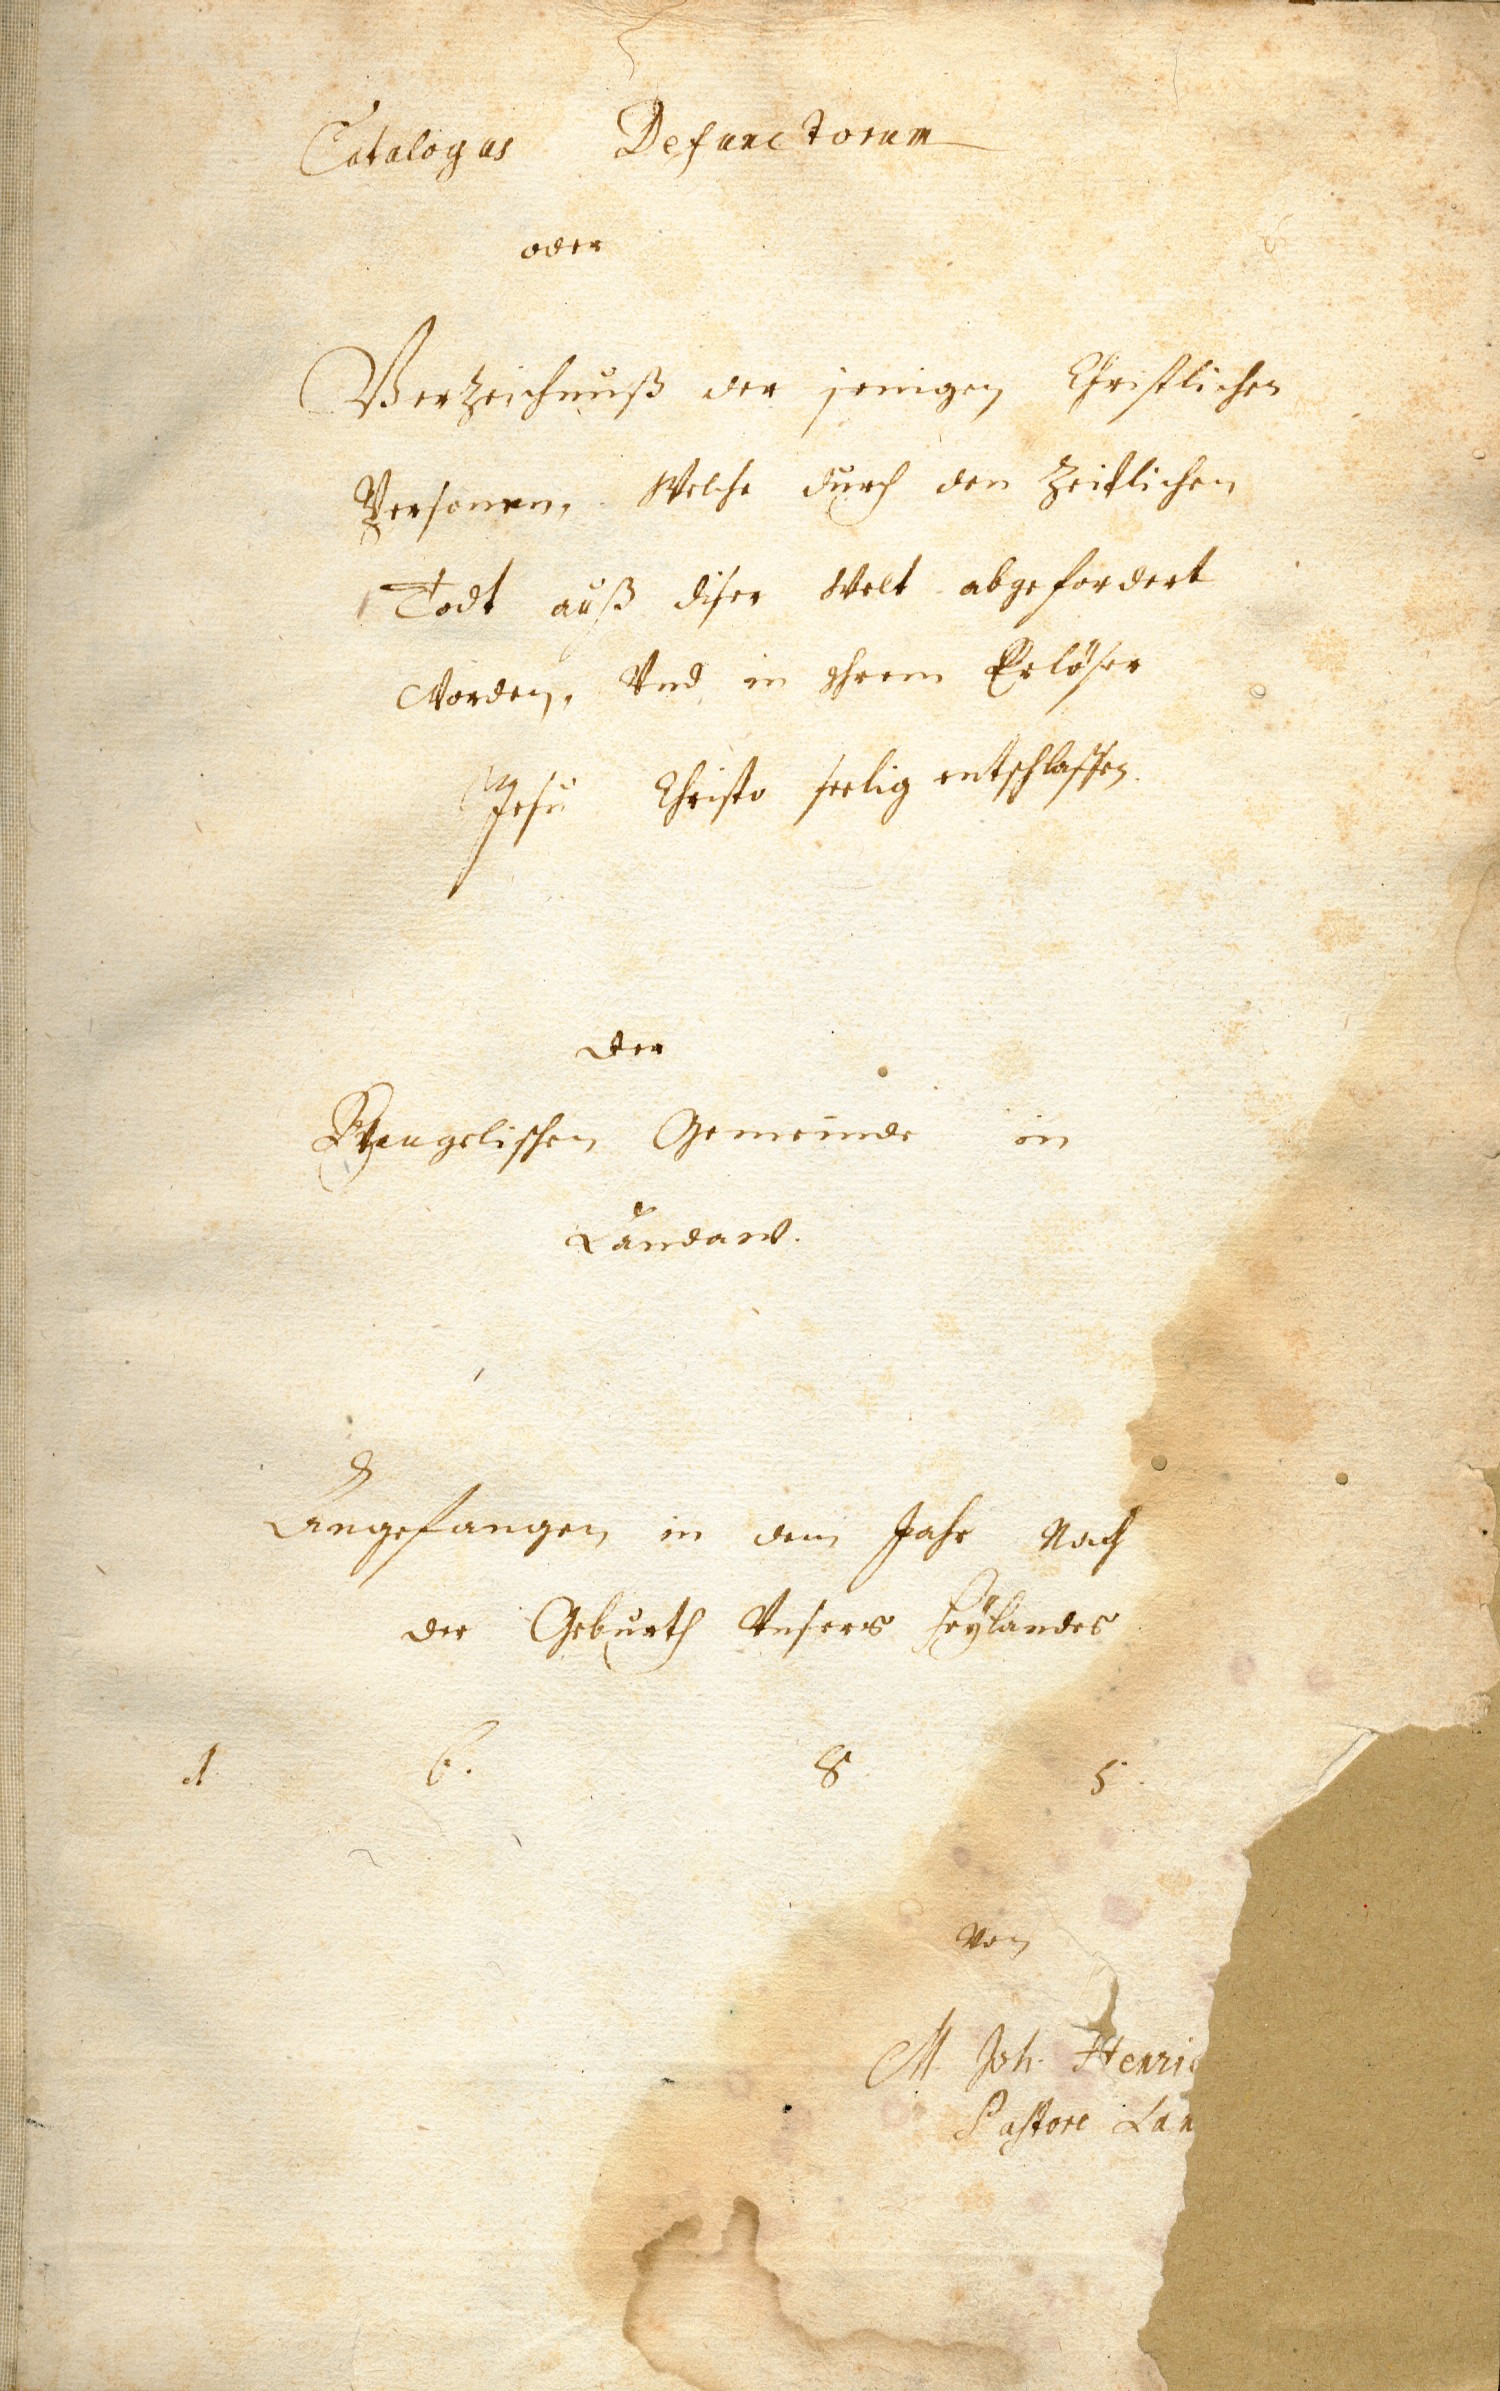 Catalogus Defunctorum
oder
Verzeichnuß der jenigen Christlichen
Personen, Welche durch den Zeitlichen
Todt auß diser Welt abgefordert
Worden, Vnd in Ihrem Erlöser
Jesu Christo seelig entschlaffen.
der
Evangelischen Gemeinde in
Landaw.
Angefangen in dem Jahr Nach
der Geburth Vnsers Heylandes
1 6. 8 5.
Von
M. Joh. Henric
Pastore Lan